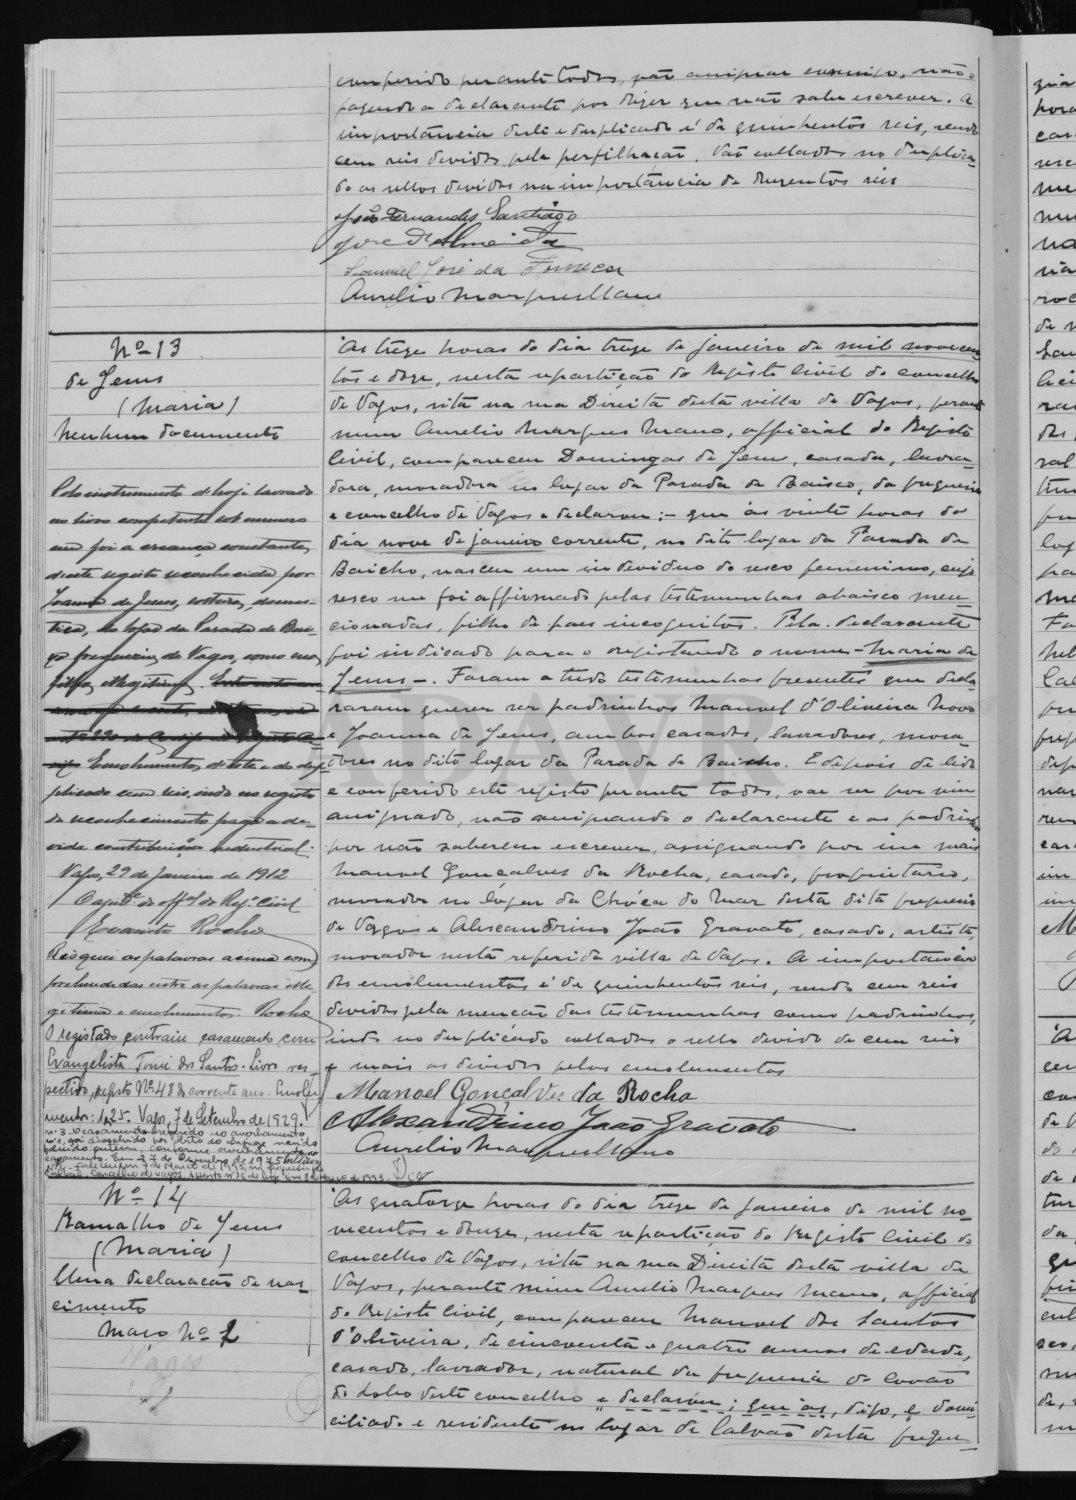 conferido perante todos, vão assignar commigo, não o
fazendo a declarante por dizer que não sabe escrever. A
importancia deste e duplicado é de quinhentos reis, sendo
cem reis devidos pela perfilhação. Vão collados no duplica-
do os sellos devidos na importância de duzentos reis
João Fernandes Santiago
José d'Almeida
Samuel José da Fonseca
Aurelio Marques Mano
Nº 13
de Jesus
(Maria)
Nenhum documento
Pelo instrumento de hoje lavrado
no livro competente sob numero
um foi a creança constante,
deste registo reconhecida por
Joanna de Jesus, solteira, domes-
tica, do logar da Parada de Bai-
xo freguezia de Vagos, como sua
filha illegitima.
Emolumentos deste e do du-
plicado cem reis, indo no registo
de reconhecimento pago a de-
vida contribuição industrial.
Vagos, 29 de Janeiro de 1912
O ajud.e do off.al do Reg.º Civil
Evaristo Rocha
Risquei as palavras acima com-
prehendidas entre as palavras ille-
gitima e emolumentos. Rocha
O registado contraiu casamento com
Evangelista Tomé dos Santos. Livro res-
pectivo, registo Nº 48 do corrente ano. Emolu-
mentos: 1$25. Vagos, 7 de Setembro de 1929.
Nº 3. O casamento referido no averbamento
nº 1, foi dissolvido por óbito do conjuge marido
casamento. Em 27 de Outubro de 1975
Nº 4 - Faleceu em 7 de Março de 1993, na freguesia de
Calvão, concelho de Vagos.
As treze horas do dia treze de janeiro de mil novecen-
tos e doze, nesta repartição do Registo Civil do concelho
de Vagos, sita na rua Direita desta villa de Vagos, perante
mim Aurelio Marques Mano, official do Registo
Civil, compareceu Domingas de Jesus, casada, lavra-
dora, moradora no logar da Parada de Baixo, da freguezia
e concelho de Vagos e declarou: - que ás vinte horas do
dia nove de janeiro corrente, no dito logar da Parada de
Baicho, nasceu um individuo do sexo femenino, cujo
sexo me foi affirmado pelas testemunhas abaixo men-
cionadas, filho de paes incognitos. Pela declarante
foi indicado para o registando o nome - Maria de
Jesus -. Foram a tudo testemunhas presentes que decla-
raram querer ser padrinhos Manuel d'Oliveira Novo
e Joanna de Jesus, ambos casados, lavradores, mora-
dores no dito logar da Parada de Baicho. E depois de lido
e conferido este registo perante todos, vae ser por mim
assignado, não assignando o declarante e os padrinhos
por não saberem escrever, assignando por im mais
Manuel Gonçalves da Rocha, casado, proprietario,
morador no logar da Choca do Mar desta dita freguezia
de Vagos e Alexandrino João Gravato, casado, artista,
morador nesta referida villa de Vagos. A importancia
dos emolumentos é de quinhentos reis, sendo cem reis
devidos pela menção das testemunhas como padrinhos,
indo no duplicado collados o sello devido de cem reis
e mais os devidos pelos emolumentos
Manoel Gonçalves da Rocha
Alexandrino João Gravato
Aurelio Marques Mano
Nº 14
Ramalho de Jesus
(Maria)
Uma declaração de nas-
cimento
Maço Nº 1
Vagos
As quatorze horas do dia treze de janeiro de mil no-
vecentos e douze, nesta repartição do Registo Civil do
concelho de Vagos, sita na rua Direita desta villa de
Vagos, perante mim Aurelio Marques Mano, official
do Registo Civil, compareceu Manuel dos Santos
d'Oliveira, de cincoenta e quatro annos de edade,
casado, lavrador, natural da freguezia de Covão
do Lobo deste concelho e declarou: que ás, digo, e domi-
ciliado e residente no logar de Calvão desta fregue-